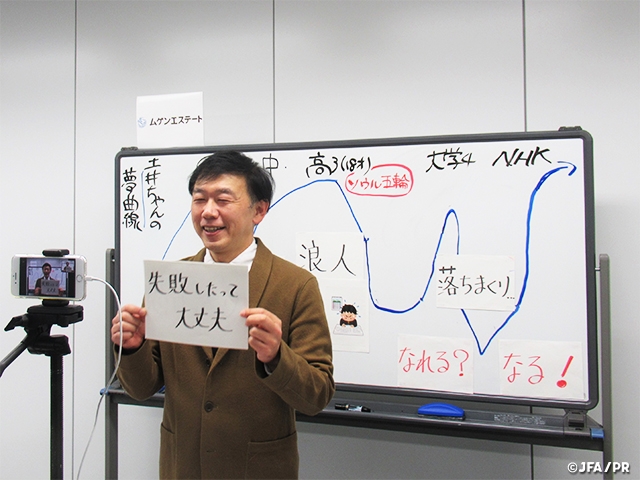 ムゲンエステート
土井ちゃんの
夢曲線
中.
高3(18才)
ソウル五輪
大学4
NHK
浪人
落ちまくり…
失敗したって
大丈夫
なれる?
なる!
©JFA/PR